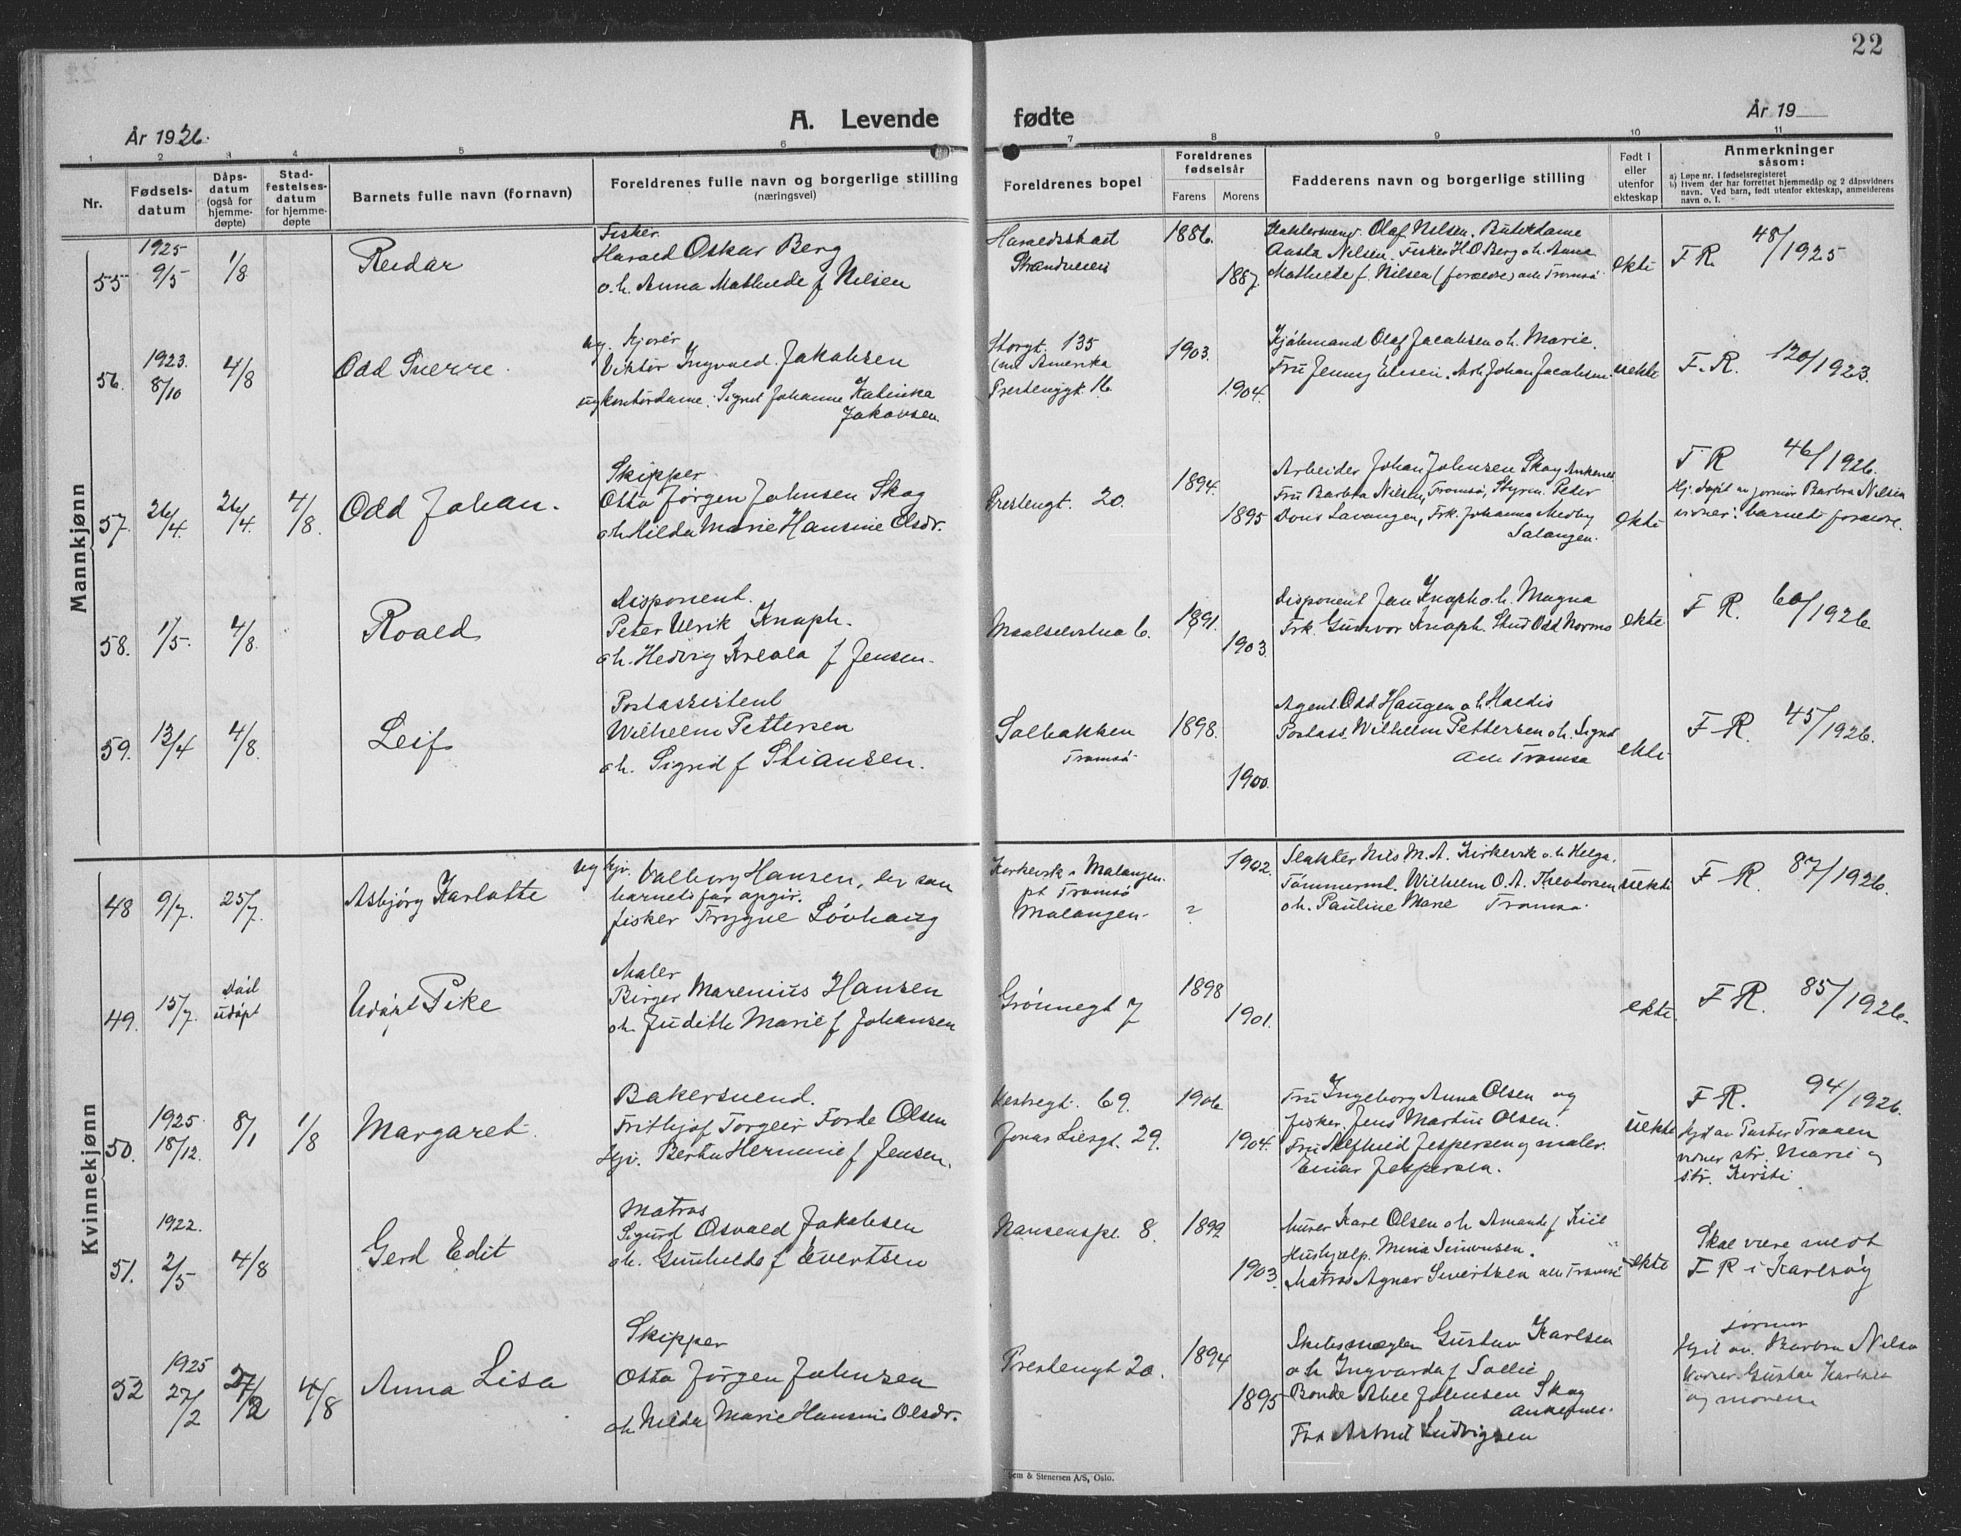 22
A. Levende fødte
År 1926.
År 19
1 2 3 4 5 6 7 8 9 10 11
Nr.
Fødsels-
datum
Dåps-
datum
(også for
hjemme-
døpte)
Stad-
festelses-
datum
for hjemme-
døpte
Barnets fulle navn (fornavn)
Foreldrenes fulle navn og borgerlige stilling
(næringsvei)
Foreldrenes bopel
Foreldrenes
fødselsår
Farens Morens
Fadderens navn og borgerlige stilling
Født i
eller
utenfor
ekteskap
Anmerkninger
såsom:
a) Løpe nr. i fødselsregisteret
b) Hvem der har forrettet hjemmedåp og 2 dåpsvidners
navn. Ved barn, født utenfor ekteskap, anmelderens
navn o. l.
Mannkjønn
55
1925
9/5
1/8
Reidar
Fisker
Harald Oskar Berg
o.h. Anna Mathilde f Nilsen
Strandveien
1886.
1887.
Olaf Nilsen. Butikdame
Nilsen. Fisker H.O Berg o.h. Anna
Mathilde f. Nilsen (forældre) alle Tromsö
ekte
F R. 48/1925
56.
1923.
8/10
4/8
Odd Sverre.
ug. Kjörer
Viktor Ingvald Jakobsen
ug kontordame. Sigrid Johanne Katinka
Jakobsen
Storgt. 135
Amerika
Prestenggt. 16
1903.
1904.
Olaf Jacobsen o.h. Marie.
Fru Jenny Arb. Johan Jacobsen.
uekte
F. R. 120/1923.
57.
26/4
26/4
4/8.
Odd Johan.
Skipper
Otto Jörgen Johnsen Skog
o.h. Hilda Marie Hansine Olsdr.
Prestengt. 20.
1894.
1895
Arbeider Johan Johnsen Skog Ankenes
Fru Barbra Nilsen, Tromsö, Styrm. Peter
Lavangen, Frk. Johanna Medby
Salangen.
ekte
F R 46/1926.
Hj. døpt av jormor Barbra Nilsen
vidner: barnets foreldre.
58.
1/5.
4/8.
Roald
Disponent.
Peter Ulrik Knaph.
o.h. Hedvig f Jensen.
6.
1891.
1903.
Disponent Jan Knaph o.h. Magna
Frk. Gunvor Knaph. Stud Odd
ekte
F R. 60/1926.
59.
13/4
4/8.
Leif
Postassistent
Wilhelm Pettersen
o.h. Sigrid f Stiansen.
Solbakken
Tromsö.
1898.
1900.
Agent Odd Haugen o.h. Haldis
Postass. Wilhelm Pettersen o.h. Sigrid
alle Tromsö
ekte
F R. 45/1926.
Kvinnekjønn
48
9/7.
25/7.
Asbjörg Karlotte
ug hjv. Valborg Hansen, der som
barnets far opgir.
fisker Trygve Lövhaug
Malangen
pt Tromsö
Malangen.
1902.
?
Slakter Nils M. A. Kirkevik o.h. Helga.
Tömmerml. Wilhelm O. A. Theodorsen
o.h. Pauline Marie Tromsö.
uekte
F R. 87/1926.
49.
15/7.
Död
udöpt
Udöpt Pike
Maler
Birger Marenius Hansen
o.h. Judith Marie f Johansen
Grönnegt 7
1898
1901.
ekte.
F R. 85/1926.
50.
1925.
18/12.
8/1
1/8
Margaret
Bakersvend.
Frithjof Torgeir Forde Olsen
Hjv. Berta Hermine f Jensen.
Vestregt. 69.
Jonas Liesgt. 29.
1906.
1904.
Fru Ingeborg Anna Olsen og
fisker. Jens Martin Olsen.
Fru Alfhild Jespersen og maler.
Einar Jespersen.
uekte
F R. 94/1926.
Hjd av Pastor Traaen
vidner str. Marie og
str. Kirsti
51.
1922.
2/5
4/8
Gerd Edit
Matros
Sigurd Osvald Jakobsen
o.h. Gunhilda f Evertsen
Nansenspl. 8.
1899
1903.
Murer Karl Olsen o.h. Amanda f Kiil
Hushjælp. Mina Simonsen.
Matros Agnar Sivertsen alle Tromsö
ekte
Skal være meldt
F R i Karlsöy
52
1925
27/2
27/2
4/8
Anna Lisa
Skipper
Otto Jörgen Johnsen
o.h. Hilda Marie Hansine Olsdr.
Prestengt 20.
1894
1895
Skibsmægler Gustav Karlsen
o.h. Ingvarda f Sollie
Bonde Johnsen Skog
Ankenes.
Frk Astrid Ludvigsen
jormor
Hjd av. Barbra Nilsen
Vidner. Gustav Karlsen
og moren
Sem & Stenersen A/S, Oslo.